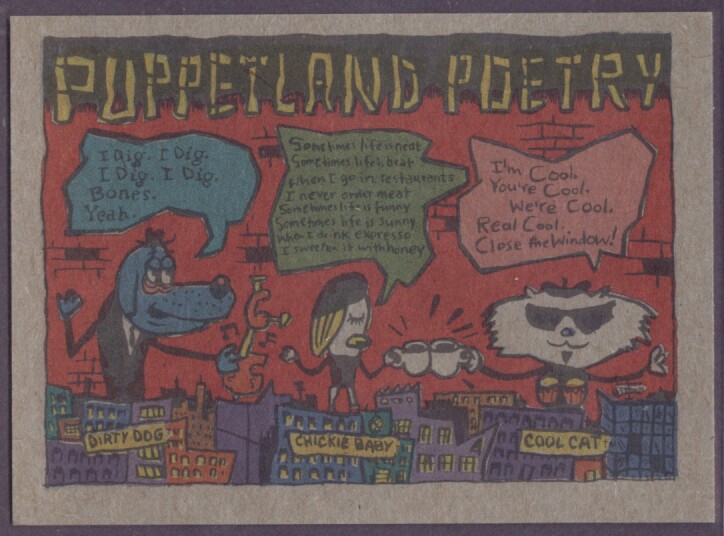 PUPPETLAND POETRY
I Dig. I Dig.
I Dig. I Dig.
Bones.
Yeah.
Sometimes life is neat
Sometimes life's beat
When I go in restaurants
I never order meat
Sometimes life is funny
Sometimes life is sunny
When I drink expresso
I sweeten it with honey
I'm Cool.
You're Cool.
We're Cool.
Real Cool.
Close the Window!
DIRTY DOG
CHICKIE BABY
COOL CAT